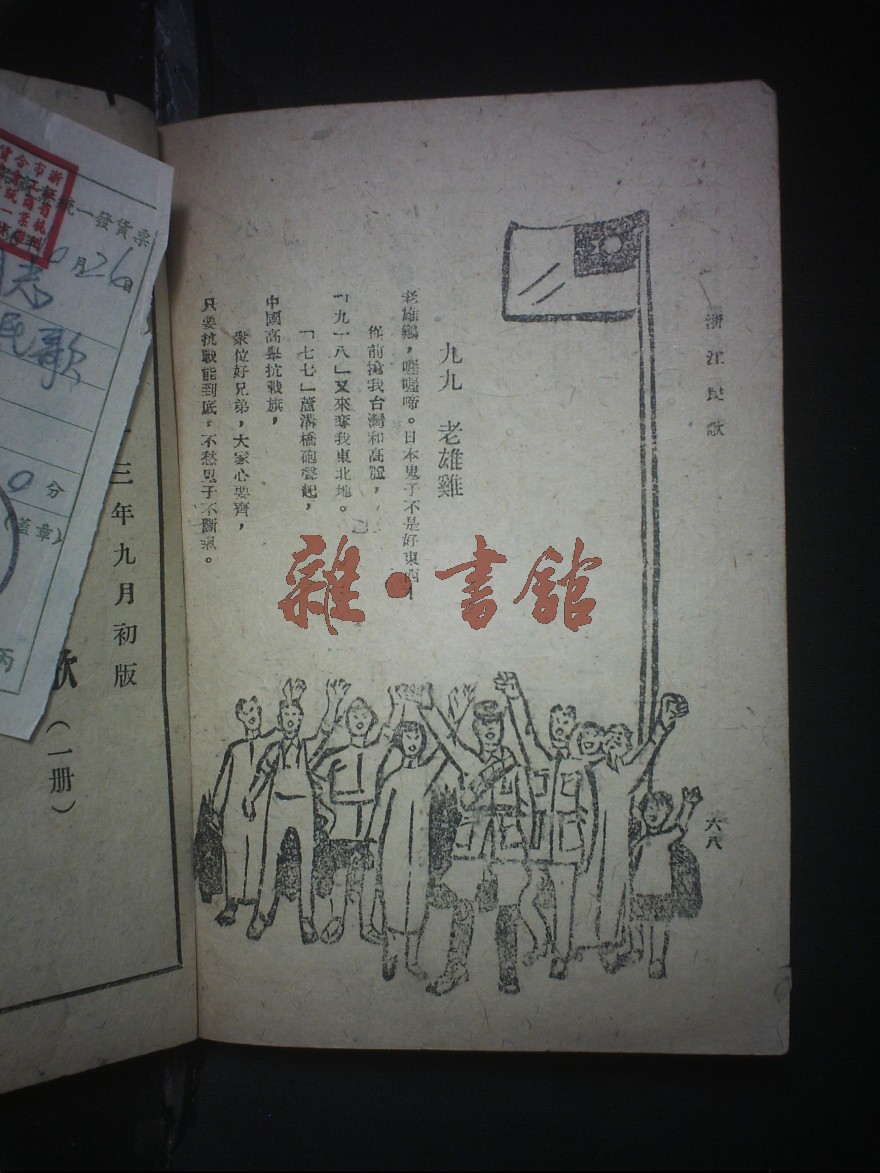 浙江民歌
六八
九九　老雄雞
老雄鷄，喔喔啼。日本鬼子不是好東西！
從前搶我台灣和高麗，
「九一八」又來奪我東北地。
「七七」蘆溝橋砲聲起，
中國高舉抗戰旗，
衆位好兄弟，大家心要齊，
只要抗戰能到底，不愁鬼子不斷氣。
雜·書館
統一發貨票
月26日
民歌
0分
三年九月初版
歌
（一册）